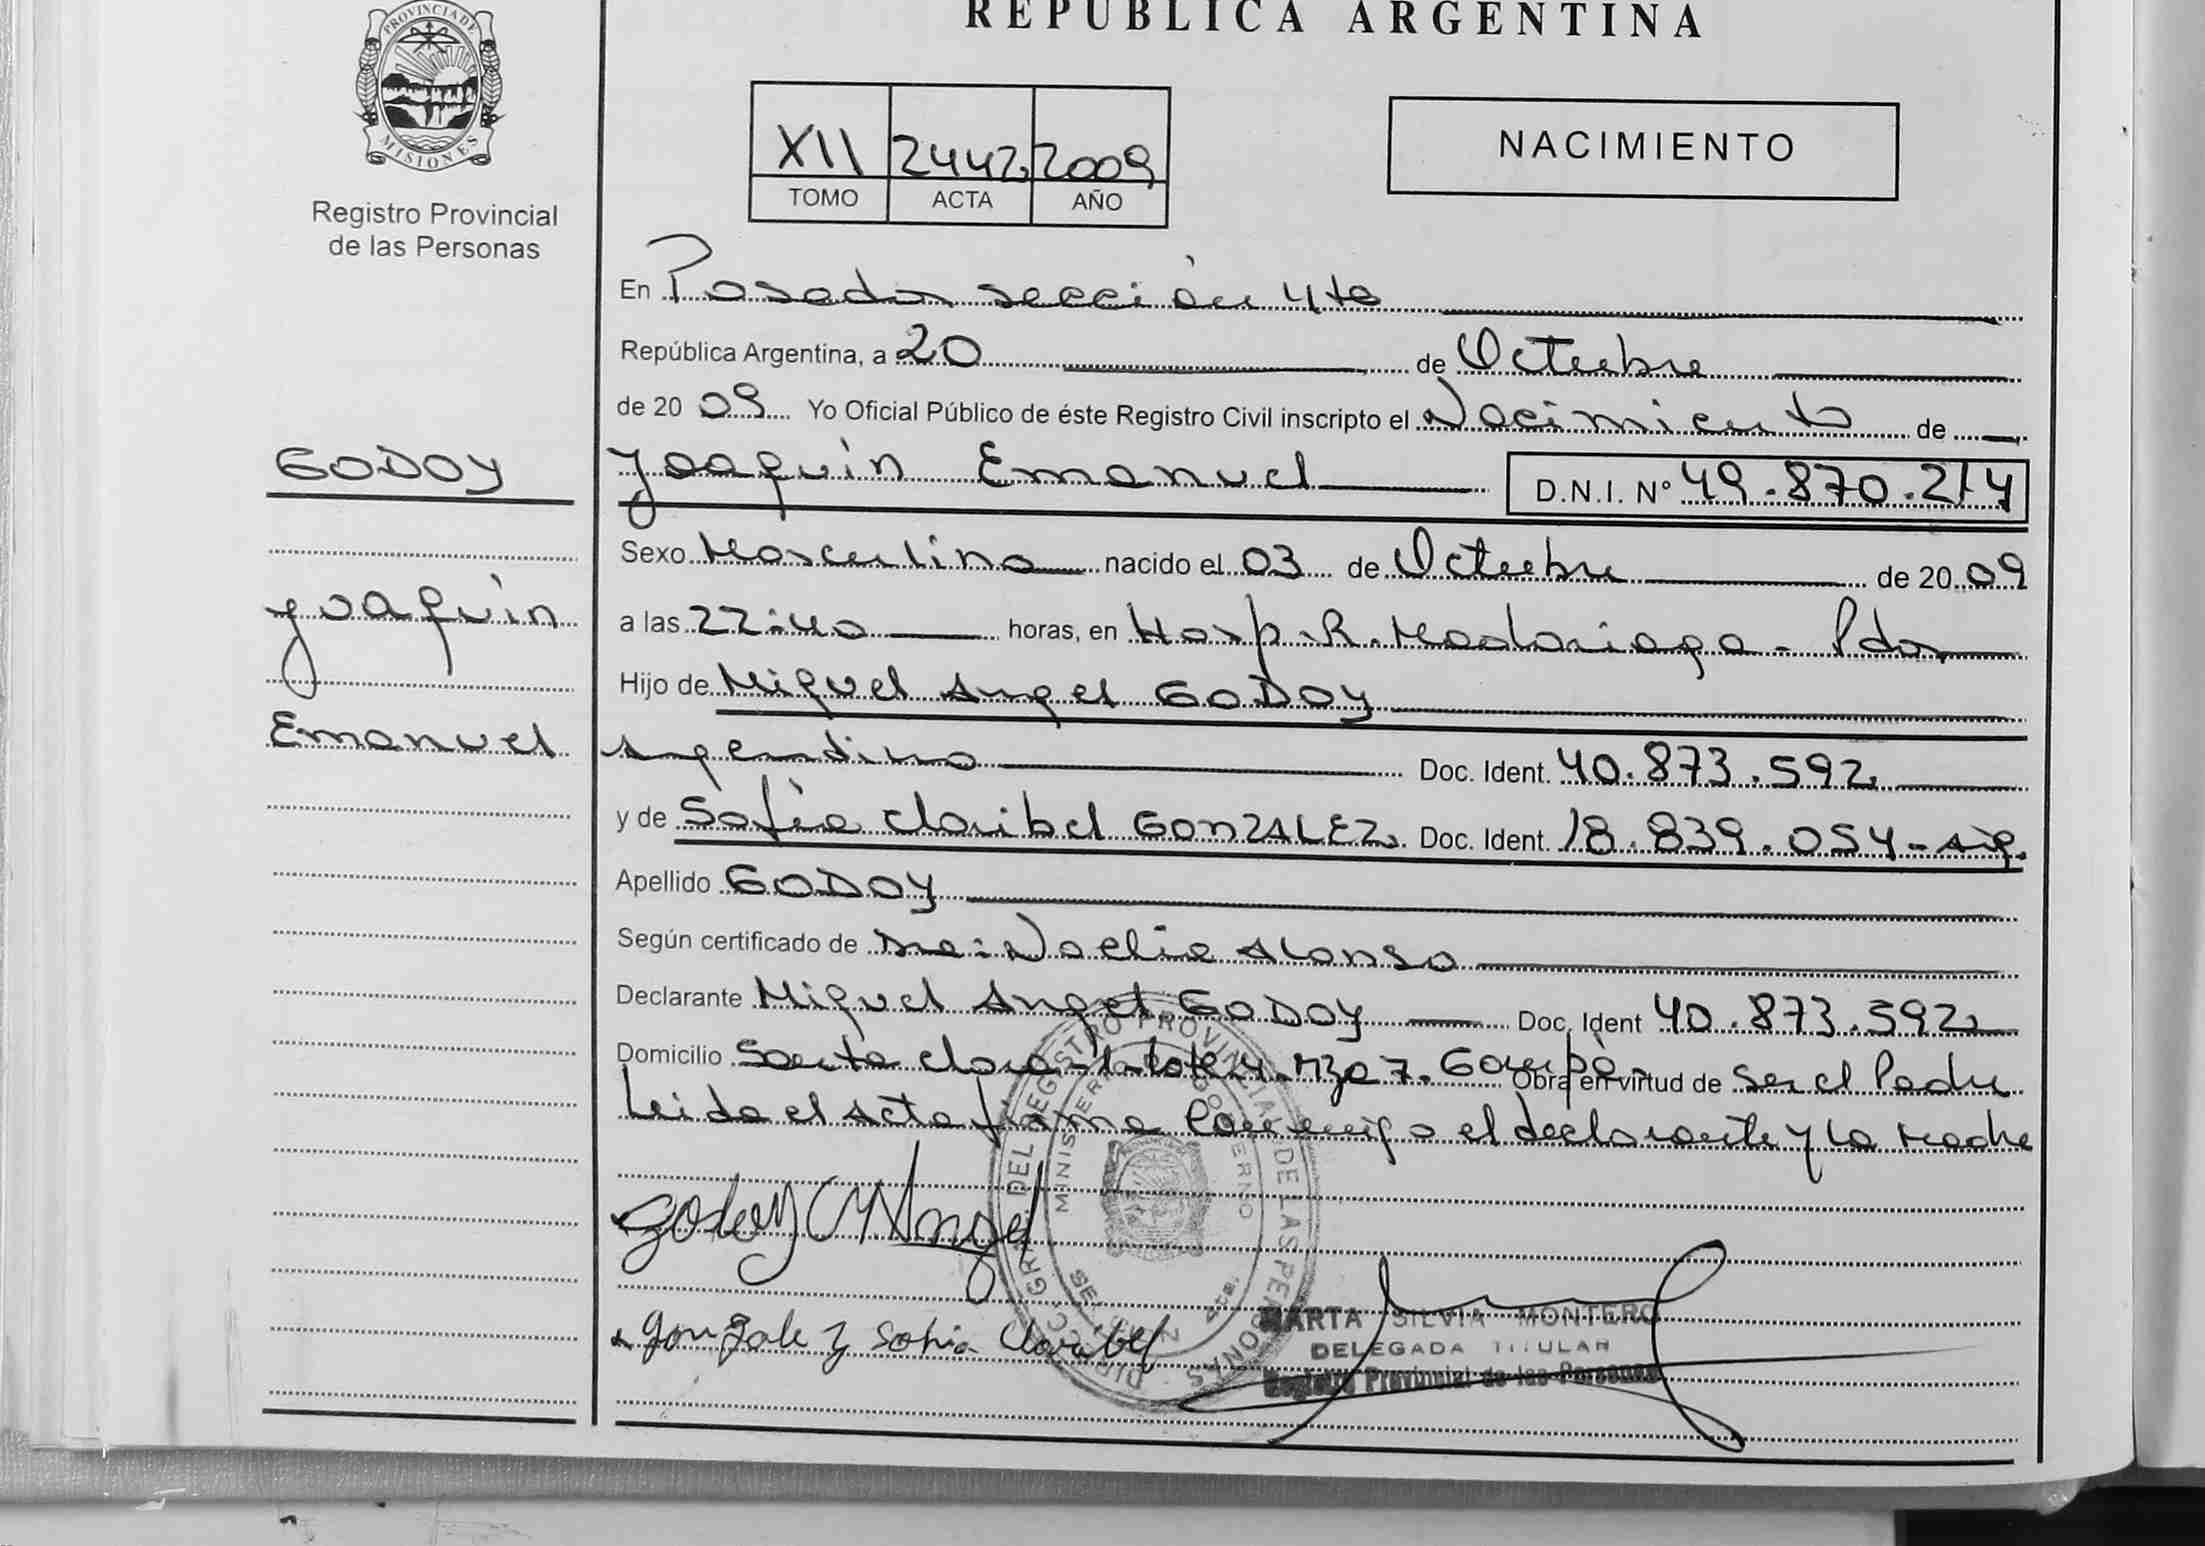 REPUBLICA ARGENTINA
PROVINCIA DE
MISIONES
Registro Provincial
de las Personas
XII 2442 2009
TOMO ACTA AÑO
NACIMIENTO
En Posadas sección 4ta
República Argentina, a 20 de Octubre
de 20 09 Yo Oficial Público de éste Registro Civil inscripto el Nacimiento de
GODOY
Joaquín Emanuel D.N.I. Nº 49.870.214
Sexo Masculino nacido el 03 de Octubre de 20 09
Joaquín
a las 22:40 horas, en Hosp. R. Madariaga - Pdas
Hijo de Miguel Angel GODOY
Emanuel
Argentino Doc. Ident. 40.873.592
y de Sofia Claribel GONZALEZ Doc. Ident. 18.839.054 - Arg.
Apellido GODOY
Según certificado de Noelia Alonso
Declarante Miguel Angel GODOY Doc. Ident 40.873.592
Domicilio Santa Clara 1 - Lote 4. Mza 7. Garupá - Obra en virtud de ser el Padre
Leida el Acta firma conmigo el declarante y la Madre
Godoy M Angel
Gonzalez Sofia Claribel
MARTA SILVIA MONTERO
DELEGADA TITULAR
Registro Provincial de las Personas
DEL REGISTRO PROVINCIAL DE LAS PERSONAS
MINISTERIO GOBIERNO
SECCION 4ta.